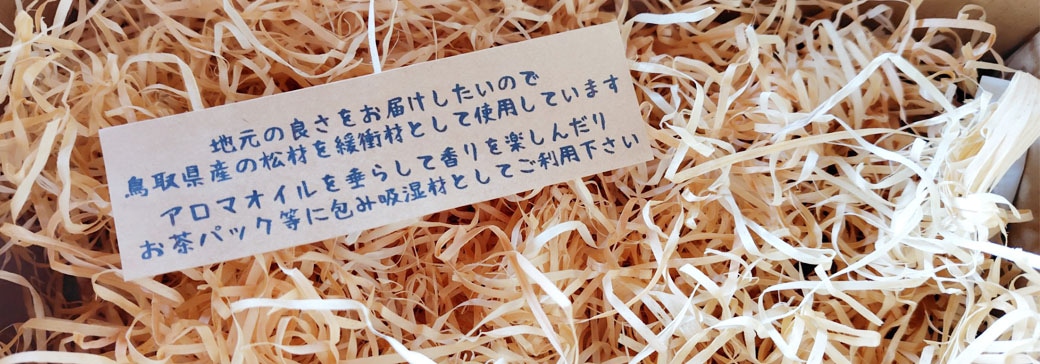 地元の良さをお届けしたいので
鳥取県産の松材を緩衝材として使用しています
アロマオイルを垂らして香りを楽しんだり
お茶パック等に包み吸湿材としてご利用下さい